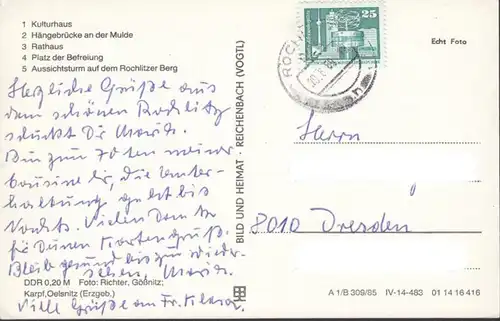 1 Kulturhaus
2 Hängebrücke an der Mulde
3 Rathaus
4 Platz der Befreiung
5 Aussichtsturm auf dem Rochlitzer Berg
Herzliche Grüße aus
dem schönen Rochlitz
schickt Dir
Bin zum 70ten meiner
Cousine hier, die Unter-
haltung geht bis
Nachts. Vielen Dank
für Deinen Kartengruß.
Bleib gesund bis zum wieder-
sehen,
DDR 0,20 M Foto: Richter, Gößnitz;
Karpf, Oelsnitz (Erzgeb.)
Viele Grüße an Fr.
BILD UND HEIMAT · REICHENBACH (VOGTL)
DDR
25
Echt Foto
Herrn
8010 Dresden
A 1/B 309/85 IV-14-483 01 14 16 416